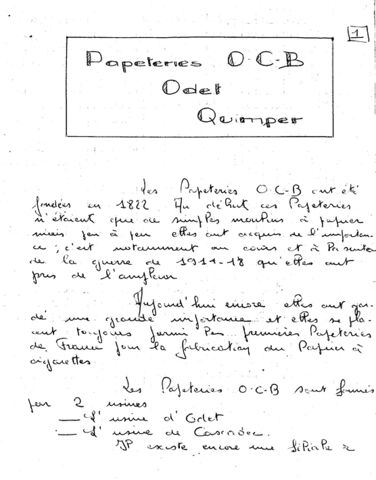 1
Papeteries O.C.B
Odet
Quimper
Les Papeteries O.C.B ont été
fondées en 1822. Au début ces Papeteries
n'étaient que de simples moulins à papier
mais peu à peu elles ont acquis de l'importan-
ce ; c'est notamment au cours et à la suite
de la guerre de 1914-18 qu'elles ont
pris de l'ampleur
Aujourd'hui encore elles ont gar-
dé une grande importance et elles se pla-
cent toujours parmi les premières Papeteries
de France pour la fabrication du Papier à
cigarettes
Les Papeteries O.C.B sont formées
par 2 usines
— L'usine d'Odet
— L'usine de Cascadec.
Il existe encore une filiale